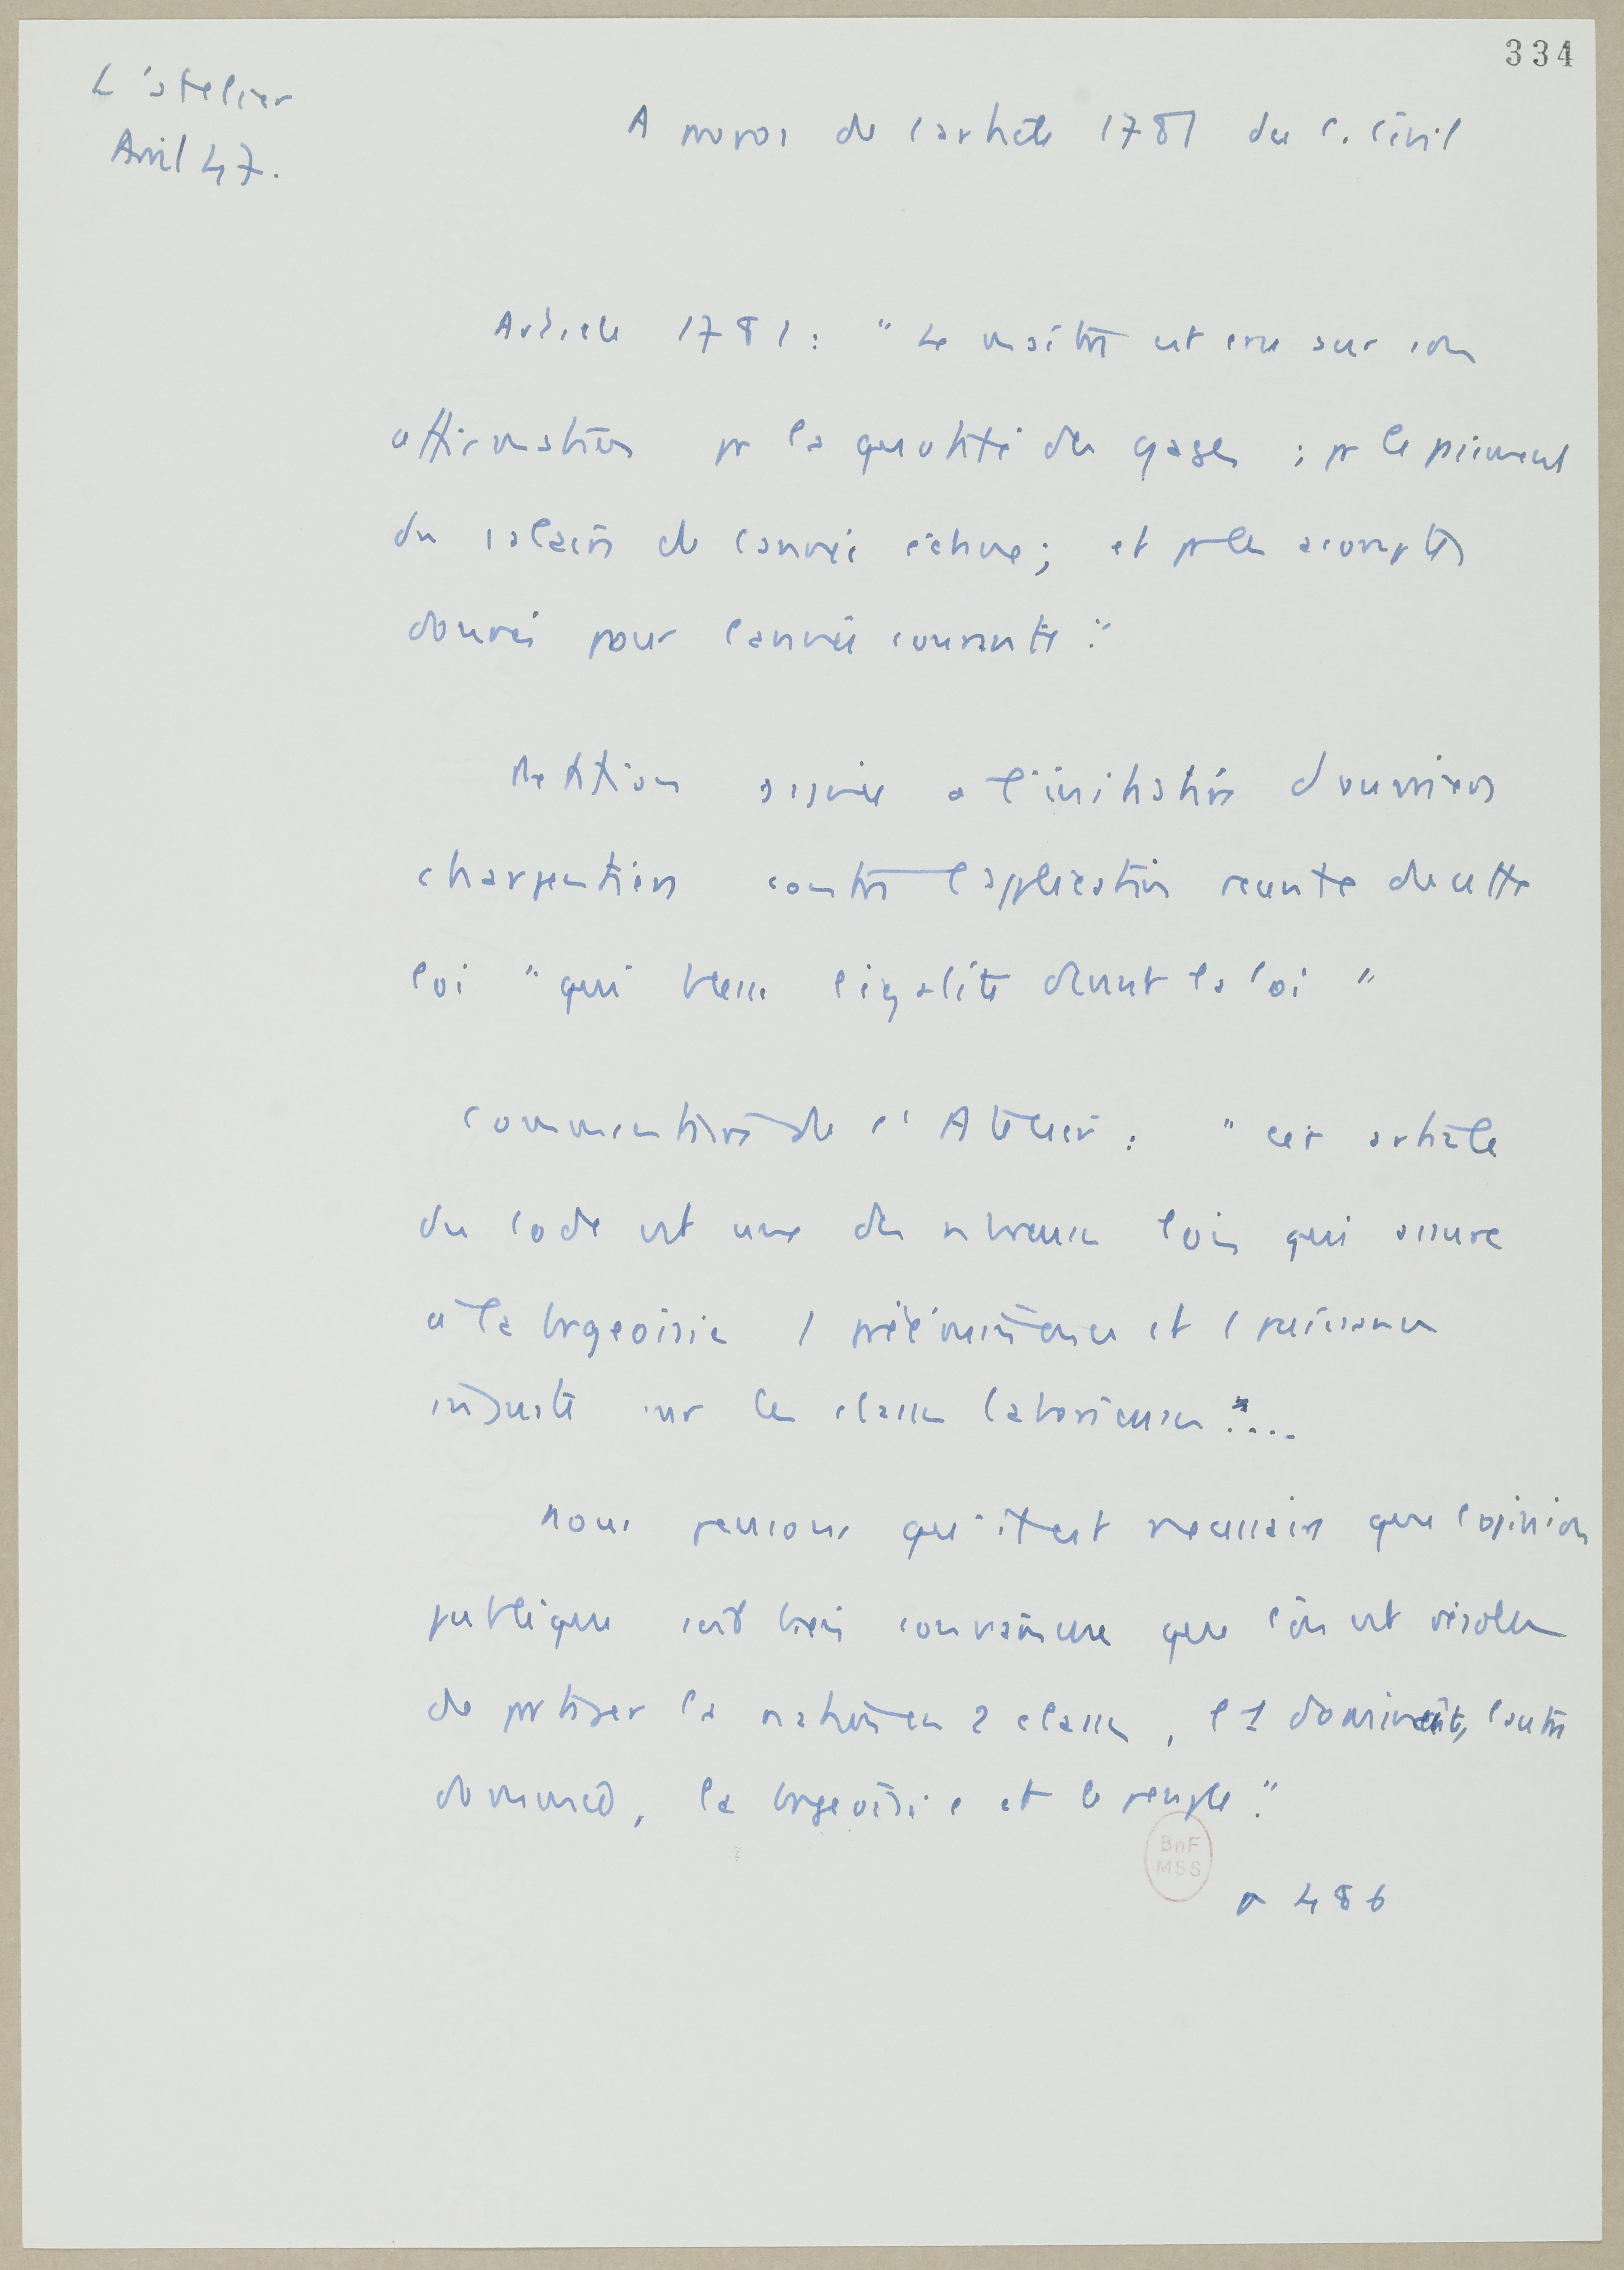 334
L'atelier
Avril 47.
A propos de l'article 1781 du C. Civil
Article 1781 : " Le maître est cru sur son
affirmation pr la quotité des gages ; pr le paiement
du salaire de l'année échue ; et pr les acomptes
donnés pour l'année courante ".
Pétition signée a l'initiative d'ouvriers
charpentiers contre l'application récente de cette
loi " qui blesse l'égalité devant la loi "
Commentaire de l'Atelier : " cet article
du code est une des nbreuses lois qui assure
à la brgeoisie 1 prééminence et 1 puissance
injuste sur les classes laborieuses "....
Nous pensons qu'il est nécessaire que l'opinion
publique soit bien convaincue que l'on est résolu
de partager la nation en 2 classes, l'1 dominante, l'autre
dominée, la brgeoisie et le peuple ".
BnF
MSS
p 486